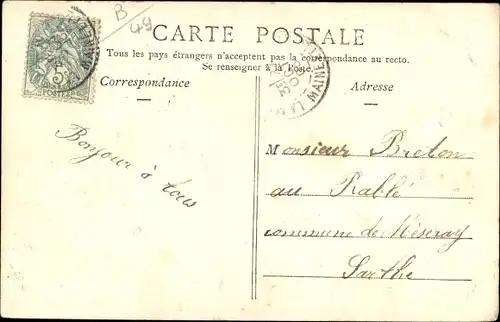 B
49
CARTE POSTALE
Tous les pays étrangers n'acceptent pas la correspondance au recto.
Se renseigner à la Poste.
Correspondance
Adresse
POSTES
Bonjour à tous
Monsieur Breton
au Rablé
commune de Méseray
Sarthe